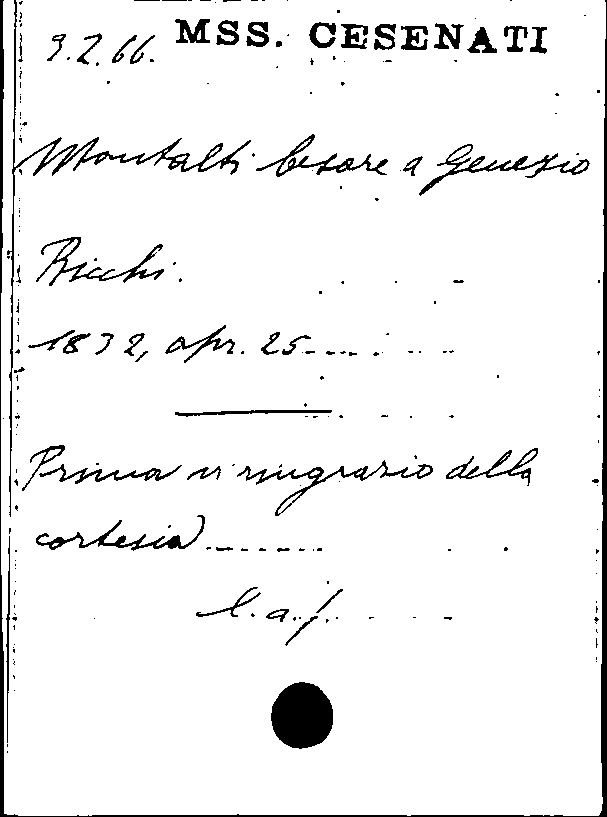 9.2.66. MSS. CESENATI
Montalti Cesare a Genesio
Ricchi.
1832, apr. 25........
Prima vi ringrazio della
cortesia........
l.a.f.